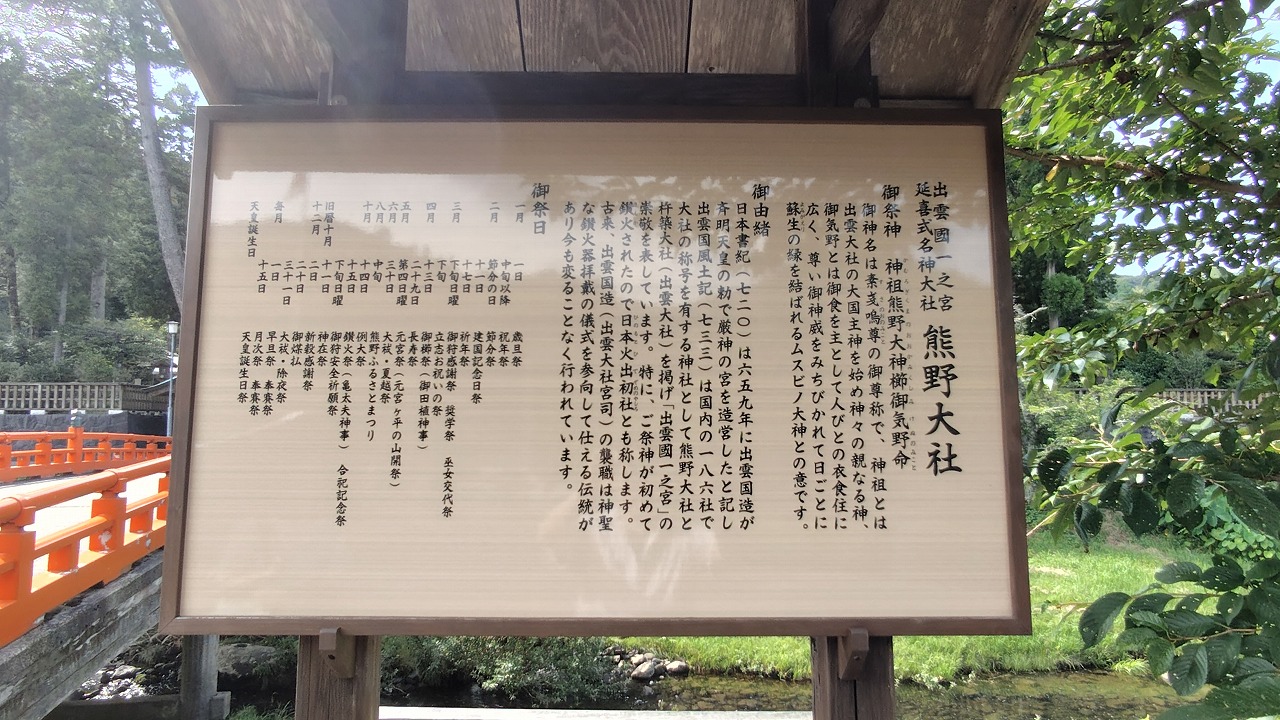 出雲國一之宮
延喜式名神大社
熊野大社
御祭神　神祖熊野大神櫛御気野命
御神名は素戔嗚尊の御尊称で、神祖とは
出雲大社の大国主神を始め神々の親なる神、
御気野とは御食を主として人びとの衣食住に
広く、尊い御神威をみちびかれて日ごとに
蘇生の縁を結ばれるムスビノ大神との意です。
御由緒
日本書紀（七二〇）は六五九年に出雲国造が
斉明天皇の勅で厳神の宮を造営したと記し
出雲国風土記（七三三）は国内の一八六社で
大社の称号を有する神社として熊野大社と
杵築大社（出雲大社）を掲げ「出雲國一之宮」の
崇敬を表しています。特に、ご祭神が初めて
鑽火されたので日本火出初社とも称します。
古来、出雲国造（出雲大社宮司）の襲職は神聖
な鑽火器拝戴の儀式を参向して仕える伝統が
あり今も変ることなく行われています。
御祭日
一月　一日　歳旦祭
中旬以降　祝年祭
二月　節分の日　節分祭
十一日　建国記念日祭
十七日　祈年祭
三月　下旬日曜　御狩感謝祭　奨学祭　巫女交代祭
下旬　立志お祝いの祭
四月　十三日　御櫛祭（御田植神事）
二十九日　長寿祭
五月　第四日曜　元宮祭（元宮ヶ平の山開祭）
六月　三十日　大祓・夏越祭
八月　中旬　熊野ふるさとまつり
十月　十四日　例大祭
十五日　鑽火祭（亀太夫神事）　合祀記念祭
下旬日曜　御狩安全祈願祭
旧暦十月　十一日　神在祭
十二月　二日　新穀感謝祭
二十日　御煤払
三十一日　大祓・除夜祭
毎月　一日　早旦祭　奉賽祭
十五日　月次祭　奉賽祭
天皇誕生日　天皇誕生日祭